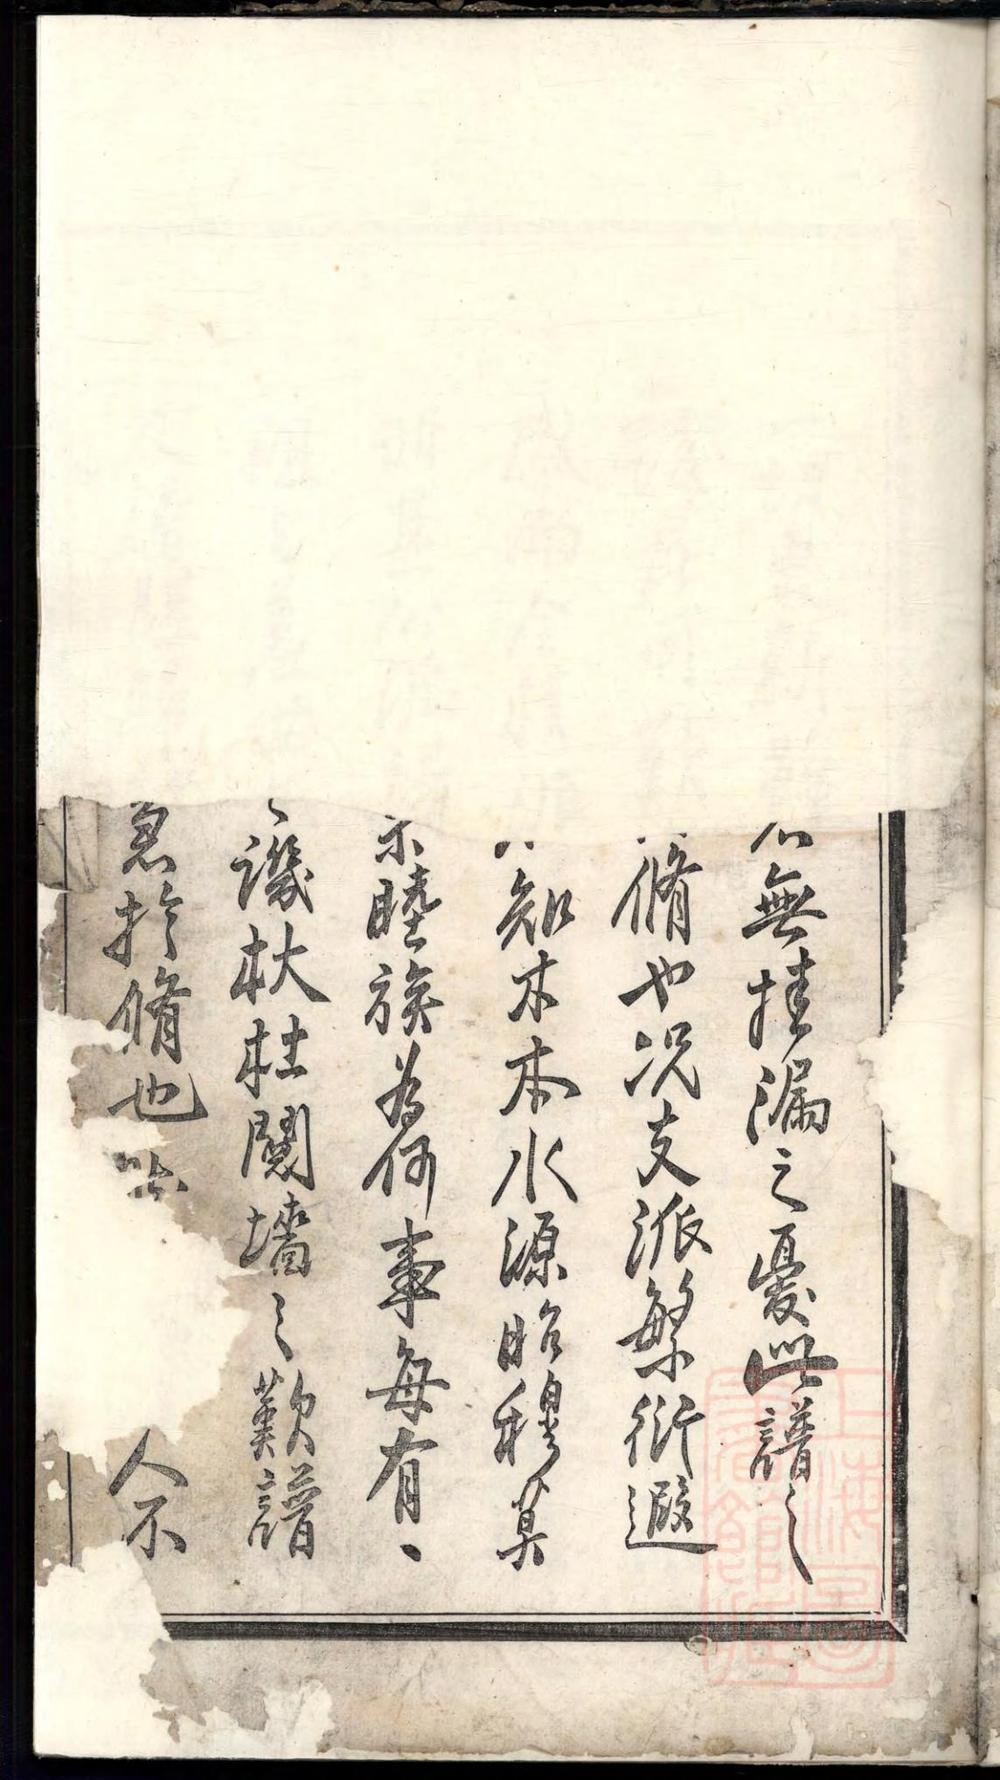 無挂漏之憂此譜之
脩也況支派繁衍遐
知木本水源昭穆莫
宗睦族為何事每有
譏杕杜鬩墻之歎譜
急於脩也
人不
上海圖書館藏